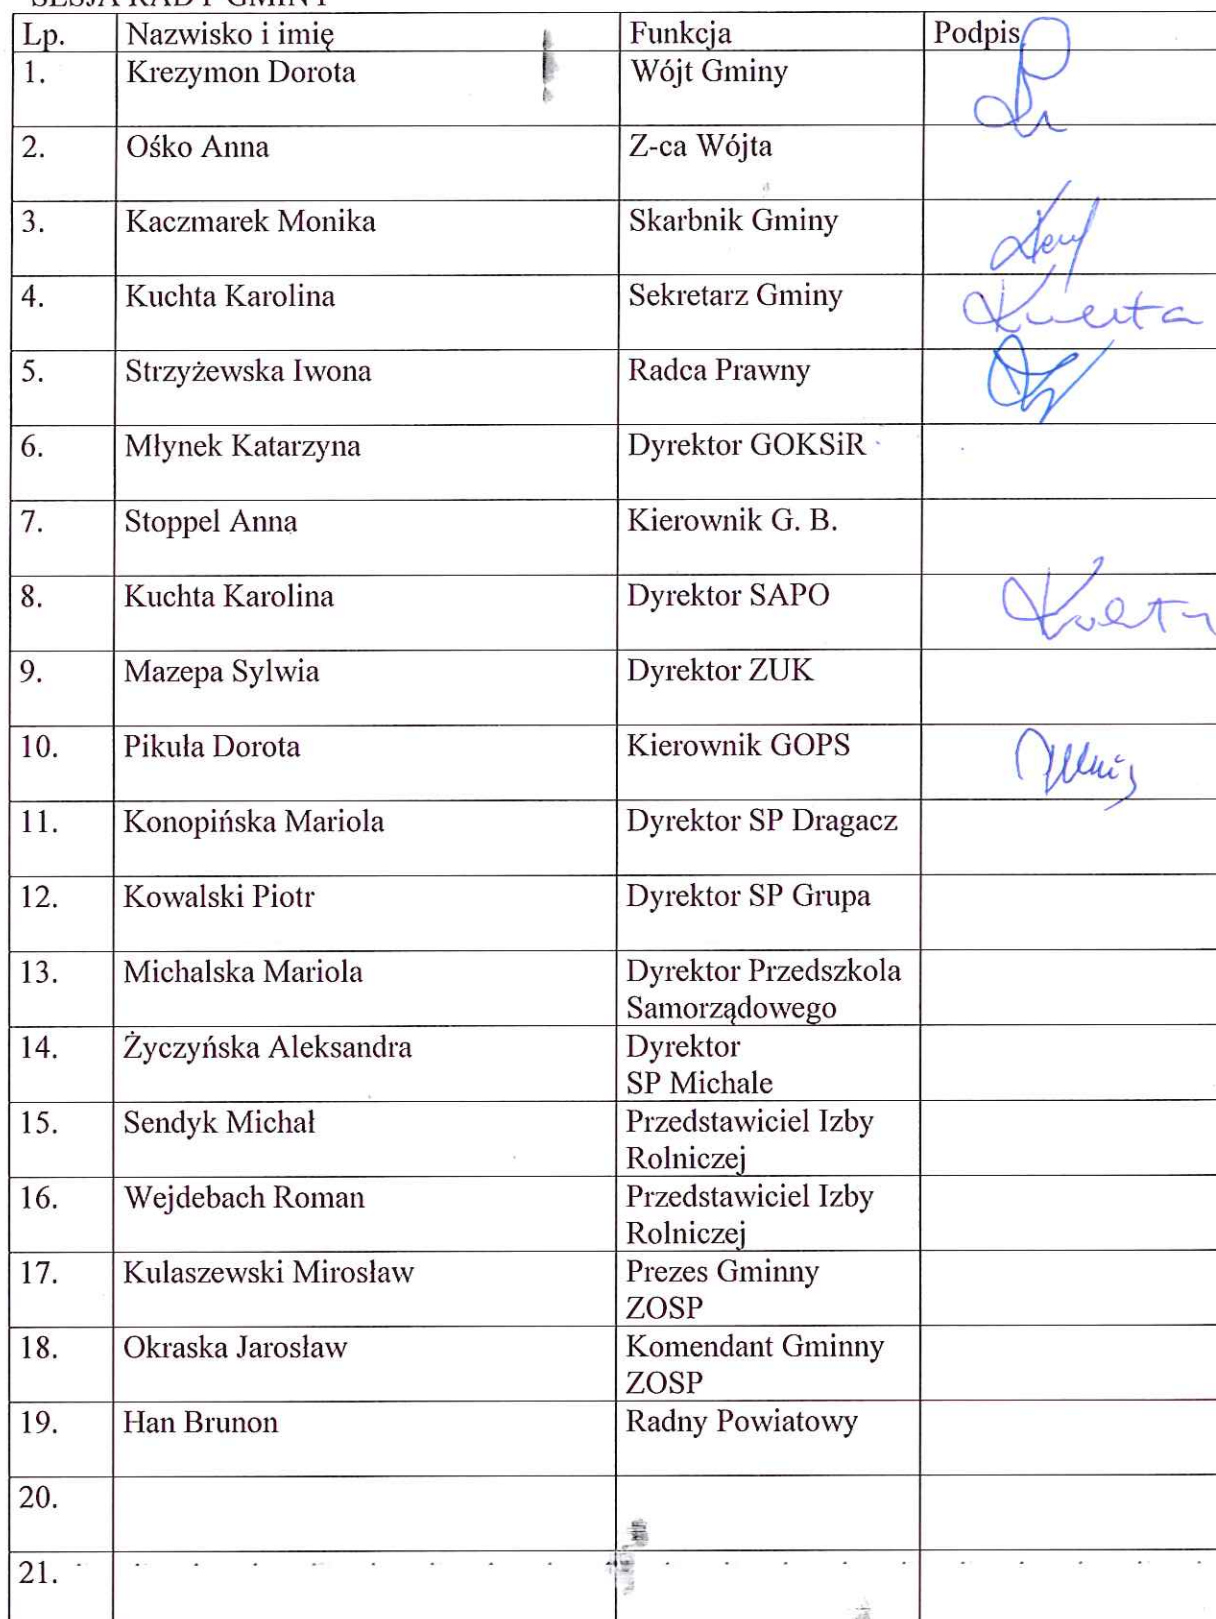 SESJA RADY GMINY
Lp. Nazwisko i imię Funkcja Podpis
1. Krezymon Dorota Wójt Gminy
2. Ośko Anna Z-ca Wójta
3. Kaczmarek Monika Skarbnik Gminy
4. Kuchta Karolina Sekretarz Gminy
5. Strzyżewska Iwona Radca Prawny
6. Młynek Katarzyna Dyrektor GOKSiR
7. Stoppel Anna Kierownik G. B.
8. Kuchta Karolina Dyrektor SAPO
9. Mazepa Sylwia Dyrektor ZUK
10. Pikuła Dorota Kierownik GOPS
11. Konopińska Mariola Dyrektor SP Dragacz
12. Kowalski Piotr Dyrektor SP Grupa
13. Michalska Mariola Dyrektor Przedszkola
Samorządowego
14. Życzyńska Aleksandra Dyrektor
SP Michale
15. Sendyk Michał Przedstawiciel Izby
Rolniczej
16. Wejdebach Roman Przedstawiciel Izby
Rolniczej
17. Kulaszewski Mirosław Prezes Gminny
ZOSP
18. Okraska Jarosław Komendant Gminny
ZOSP
19. Han Brunon Radny Powiatowy
20.
21.